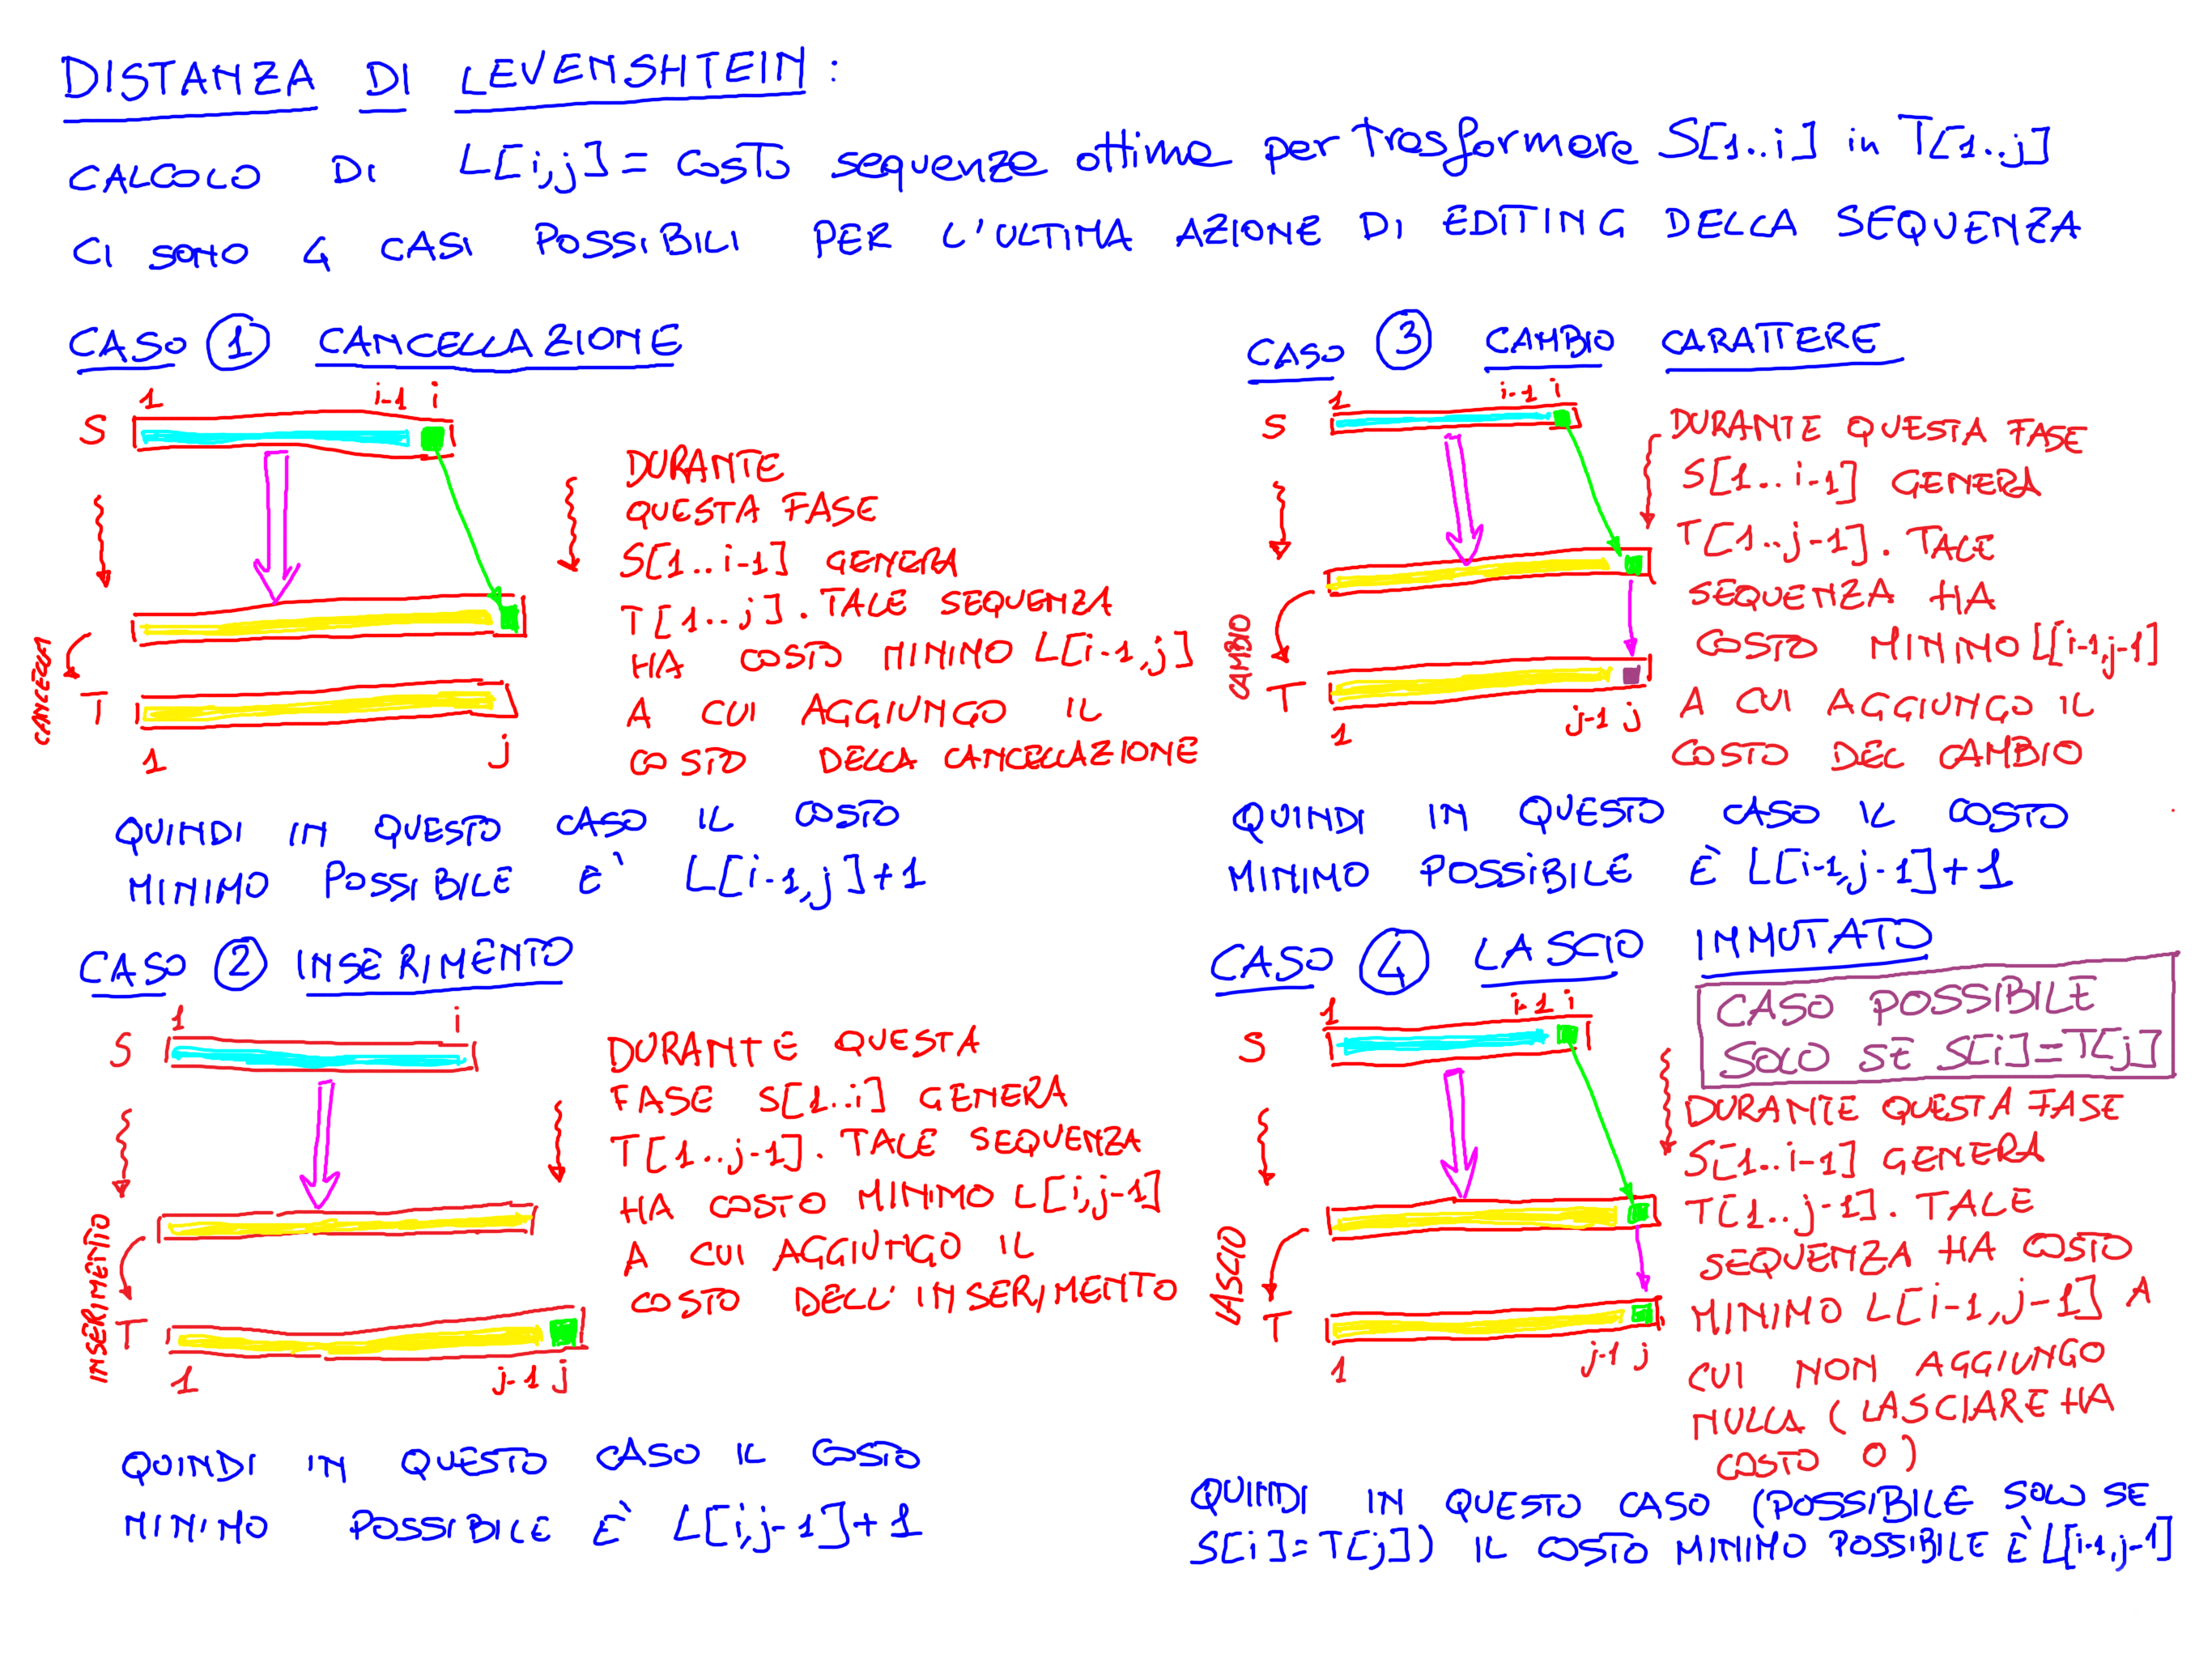 DISTANZA DI LEVENSHTEIN:
CALCOLO DI L[i,j] = COSTO sequenza ottima per trasformare S[1..i] in T[1..j]
CI SONO 4 CASI POSSIBILI PER L'ULTIMA AZIONE DI EDITING DELLA SEQUENZA
CASO 1 CANCELLAZIONE
1 i-1 i
S
DURANTE
QUESTA FASE
S[1..i-1] GENERA
T[1..j]. TALE SEQUENZA
HA COSTO MINIMO L[i-1,j]
A CUI AGGIUNGO IL
COSTO DELLA CANCELLAZIONE
CANCELLA
T
1 j
QUINDI IN QUESTO CASO IL COSTO
MINIMO POSSIBILE E' L[i-1,j]+1
CASO 2 INSERIMENTO
1 i
S
DURANTE QUESTA
FASE S[1..i] GENERA
T[1..j-1]. TALE SEQUENZA
HA COSTO MINIMO L[i,j-1]
A CUI AGGIUNGO IL
COSTO DELL'INSERIMENTO
INSERIMENTO
T
1 j-1 j
QUINDI IN QUESTO CASO IL COSTO
MINIMO POSSIBILE È L[i,j-1]+1
CASO 3 CAMBIO CARATTERE
1 i-1 i
S
DURANTE QUESTA FASE
S[1..i-1] GENERA
T[1..j-1]. TALE
SEQUENZA HA
COSTO MINIMO L[i-1,j-1]
A CUI AGGIUNGO IL
COSTO DEL CAMBIO
CAMBIO
T
1 j-1 j
QUINDI IN QUESTO CASO IL COSTO
MINIMO POSSIBILE È L[i-1,j-1]+1
CASO 4 LASCIO IMMUTATO
CASO POSSIBILE
SOLO SE S[i]=T[j]
1 i-1 i
S
DURANTE QUESTA FASE
S[1..i-1] GENERA
T[1..j-1]. TALE
SEQUENZA HA COSTO
MINIMO L[i-1,j-1] A
CUI NON AGGIUNGO
NULLA (LASCIARE HA
COSTO 0)
LASCIO
T
1 j-1 j
QUINDI IN QUESTO CASO (POSSIBILE SOLO SE
S[i]=T[j]) IL COSTO MINIMO POSSIBILE È L[i-1,j-1]